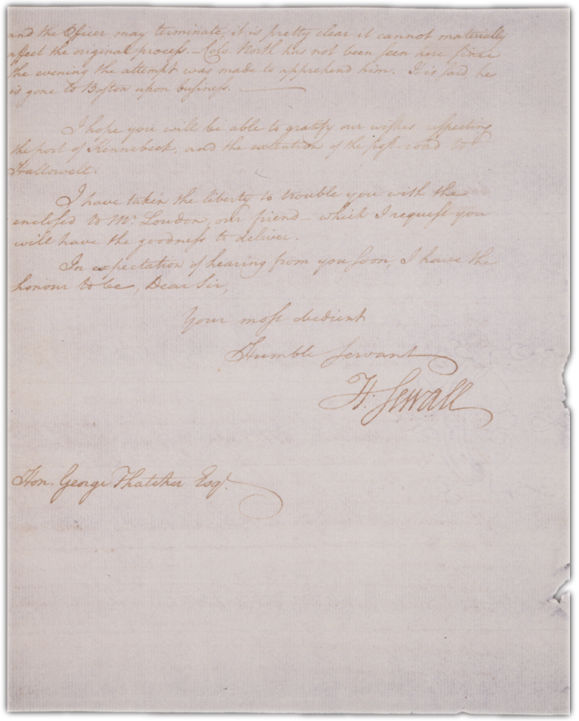 and the Officer may terminate, it is pretty clear it cannot materially
affect the original process. — Colo. North has not been seen here since
the evening the attempt was made to apprehend him. It is said he
is gone to Boston upon business. —
I hope you will be able to gratify our wishes respecting
the port of Kennebeck, and the extention of the post-road to
Hallowell.
I have taken the liberty to trouble you with the
enclosed to Mr. Loudon, our friend – which I request you
will have the goodness to deliver.
In expectation of hearing from you soon, I have the
honour to be, Dear Sir,
Your most obedient
Humble Servant
H. Sewall
Hon. George Thatcher Esqr.